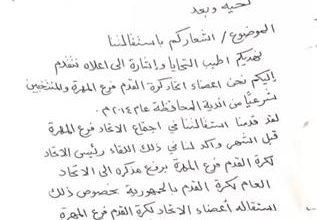 تحية وبعد
الموضوع / اشعاركم باستقالتنا
نهديكم اطيب التحايا واشارة الى اعلاه نتقدم
إليكم نحن اعضاء اتحاد كرة القدم فرع المهرة والمنتخبين
شرعياً من اندية المحافظة عام ٢٠١٤م.
لقد قدمنا استقالتنا في اجتماع الاتحاد فرع المهرة
قبل الشهر وأكد لنا في ذلك اللقاء رئيس الاتحاد
لكرة القدم فرع المهرة برفع مذكرة الى الاتحاد
العام لكرة القدم بالجمهورية بخصوص ذلك
استقالة أعضاء الاتحاد لكرة القدم فرع المهرة